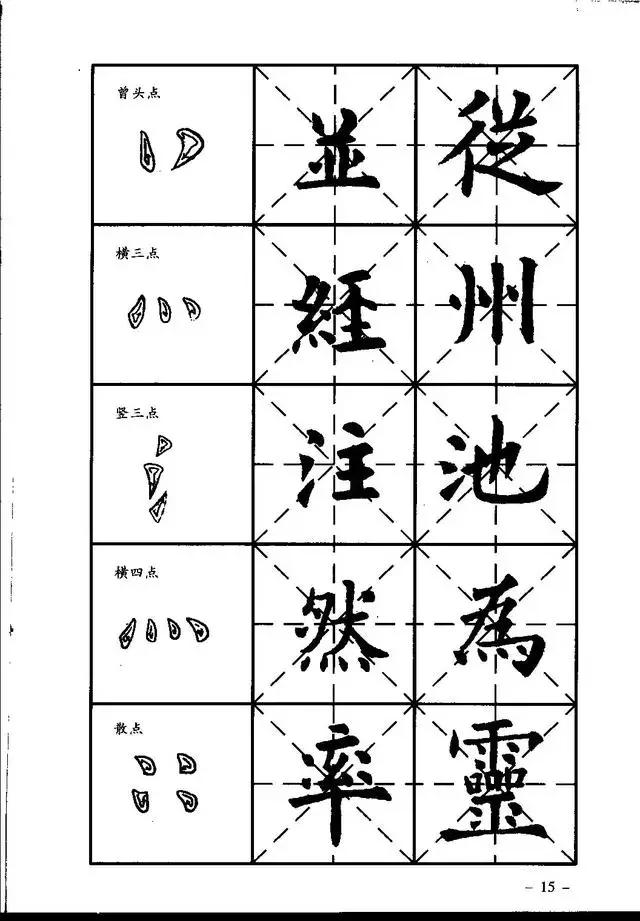 曾头点 並 從
横三点 經 州
竖三点 注 池
横四点 然 為
散点 率 靈
- 15 -